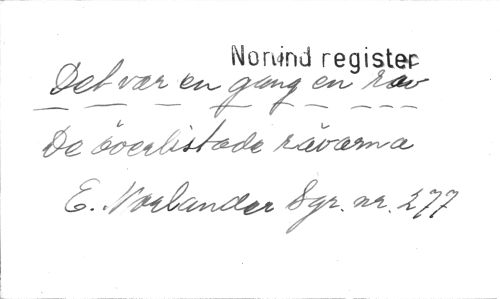 Norlind register
Det var en gång en räv
De överlistade rävarna
E. Norlander Sgr. nr. 277